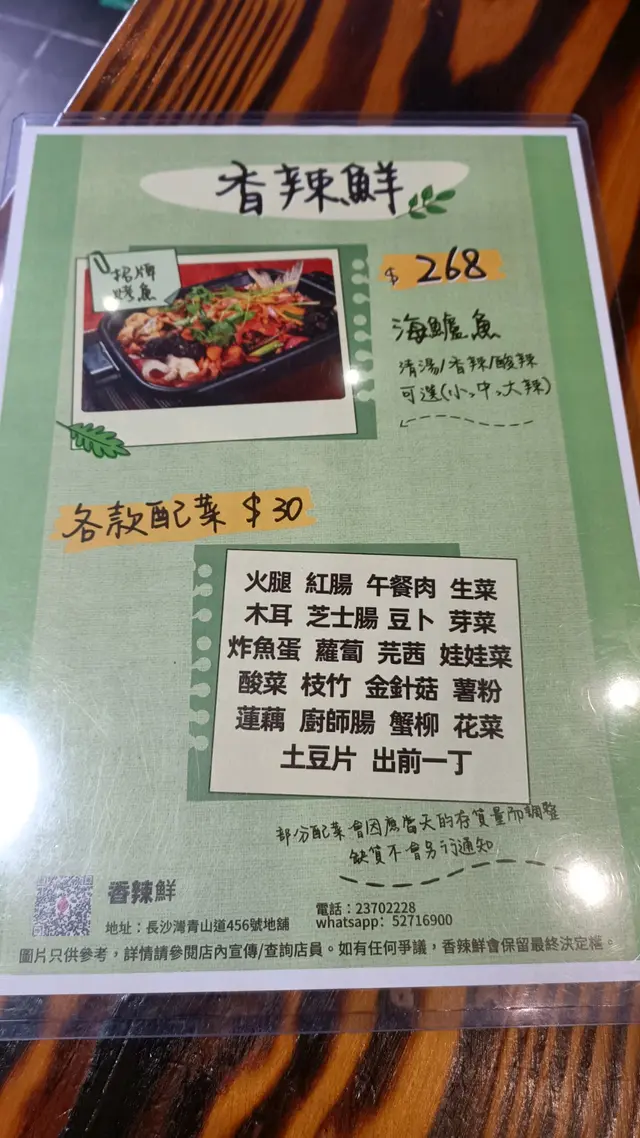 香辣鮮
招牌
烤魚
$ 268
海鱸魚
清湯/香辣/酸辣
可選(小,中,大辣)
各款配菜 $30
火腿 紅腸 午餐肉 生菜
木耳 芝士腸 豆卜 芽菜
炸魚蛋 蘿蔔 芫茜 娃娃菜
酸菜 枝竹 金針菇 薯粉
蓮藕 廚師腸 蟹柳 花菜
土豆片 出前一丁
部分配菜會因應當天的存貨量而調整
缺貨不會另行通知
香辣鮮
地址:長沙灣青山道456號地舖
電話:23702228
whatsapp: 52716900
圖片只供參考,詳情請參閱店內宣傳/查詢店員。如有任何爭議,香辣鮮會保留最終決定權。